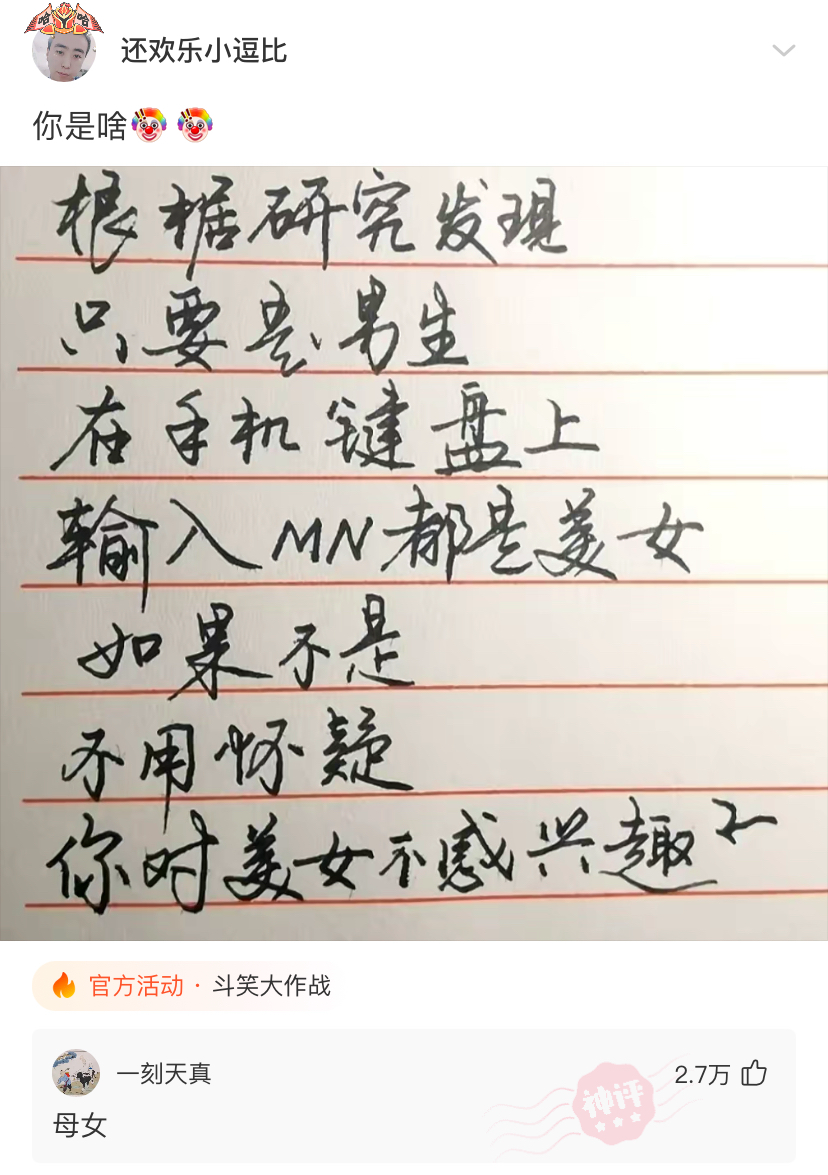 哈 哈
还欢乐小逗比
你是啥
根据研究发现
只要是男生
在手机键盘上
输入MN都是美女
如果不是
不用怀疑
你对美女不感兴趣了
官方活动·斗笑大作战
一刻天真
2.7万
母女
神评